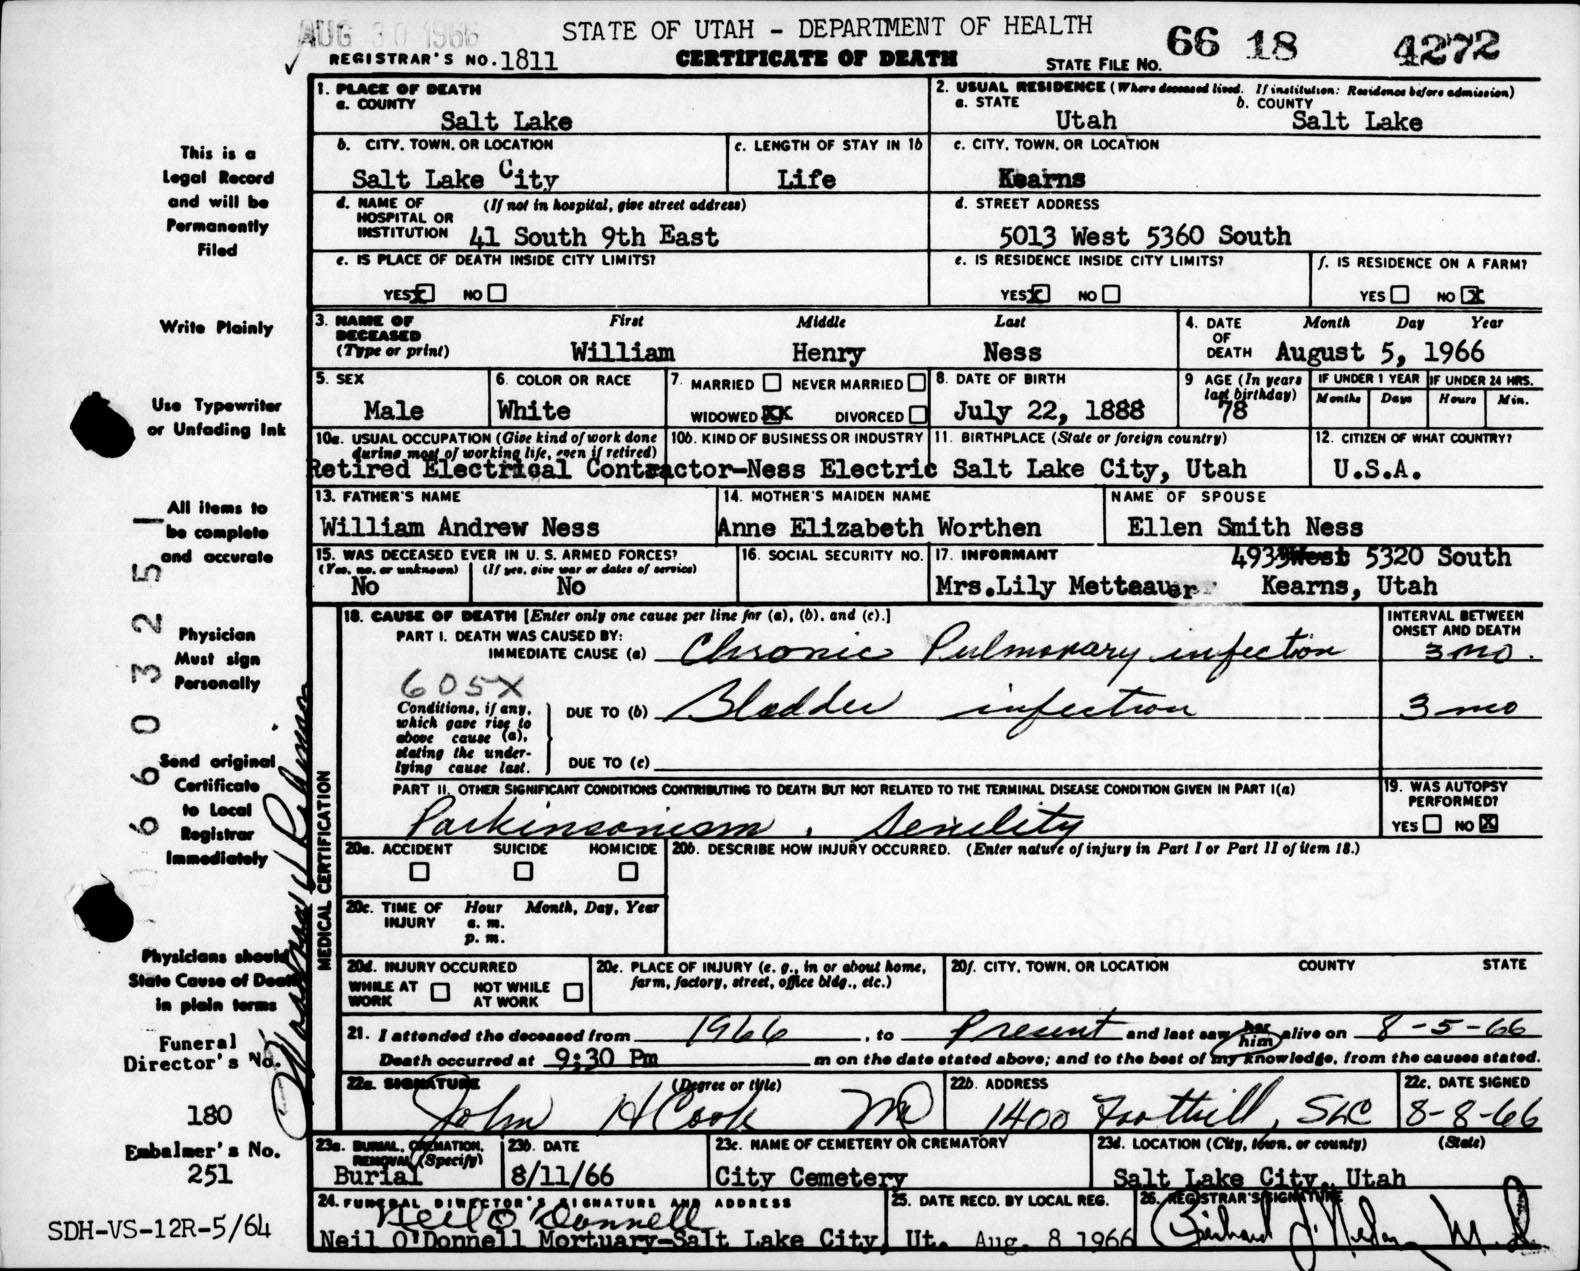 AUG 30 1966
STATE OF UTAH - DEPARTMENT OF HEALTH
66 18 4272
REGISTRAR'S NO. 1811
CERTIFICATE OF DEATH
STATE FILE NO.
This is a
Legal Record
and will be
Permanently
Filed
Write Plainly
Use Typewriter
or Unfading Ink
All items to
be complete
and accurate
Physician
Must sign
Personally
Send original
Certificate
to Local
Registrar
Immediately
Physicians should
State Cause of Death
in plain terms
Funeral
Director's No.
180
Embalmer's No.
251
SDH-VS-12R-5/64
0660325 1
1. PLACE OF DEATH
a. COUNTY
Salt Lake
2. USUAL RESIDENCE (Where deceased lived. If institution: Residence before admission)
a. STATE b. COUNTY
Utah Salt Lake
b. CITY, TOWN, OR LOCATION
Salt Lake City
c. LENGTH OF STAY IN 1b
Life
c. CITY, TOWN, OR LOCATION
Kearns
d. NAME OF HOSPITAL OR INSTITUTION (If not in hospital, give street address)
41 South 9th East
d. STREET ADDRESS
5013 West 5360 South
e. IS PLACE OF DEATH INSIDE CITY LIMITS?
YES X NO
e. IS RESIDENCE INSIDE CITY LIMITS?
YES X NO
f. IS RESIDENCE ON A FARM?
YES NO X
3. NAME OF DECEASED (Type or print)
First Middle Last
William Henry Ness
4. DATE OF DEATH Month Day Year
August 5, 1966
5. SEX
Male
6. COLOR OR RACE
White
7. MARRIED NEVER MARRIED
WIDOWED XX DIVORCED
8. DATE OF BIRTH
July 22, 1888
9 AGE (In years last birthday)
78
IF UNDER 1 YEAR IF UNDER 24 HRS.
Months Days Hours Min.
10a. USUAL OCCUPATION (Give kind of work done during most of working life, even if retired)
10b. KIND OF BUSINESS OR INDUSTRY
Retired Electrical Contractor-Ness Electric
11. BIRTHPLACE (State or foreign country)
Salt Lake City, Utah
12. CITIZEN OF WHAT COUNTRY?
U.S.A.
13. FATHER'S NAME
William Andrew Ness
14. MOTHER'S MAIDEN NAME
Anne Elizabeth Worthen
NAME OF SPOUSE
Ellen Smith Ness
15. WAS DECEASED EVER IN U. S. ARMED FORCES?
(Yes, no, or unknown) (If yes, give war or dates of service)
No No
16. SOCIAL SECURITY NO.
17. INFORMANT
4933 West 5320 South
Mrs.Lily Metteauer Kearns, Utah
MEDICAL CERTIFICATION
18. CAUSE OF DEATH [Enter only one cause per line for (a), (b), and (c).]
INTERVAL BETWEEN ONSET AND DEATH
PART I. DEATH WAS CAUSED BY:
IMMEDIATE CAUSE (a) Chronic Pulmonary infection 3 mo.
605X
Conditions, if any, which gave rise to above cause (a), stating the under-lying cause last.
DUE TO (b) Bladder infection 3 mo
DUE TO (c)
PART II. OTHER SIGNIFICANT CONDITIONS CONTRIBUTING TO DEATH BUT NOT RELATED TO THE TERMINAL DISEASE CONDITION GIVEN IN PART I(a)
Parkinsonism, Senility
19. WAS AUTOPSY PERFORMED?
YES NO X
20a. ACCIDENT SUICIDE HOMICIDE
20b. DESCRIBE HOW INJURY OCCURRED. (Enter nature of injury in Part I or Part II of item 18.)
20c. TIME OF INJURY Hour Month, Day, Year
a. m.
p. m.
20d. INJURY OCCURRED
WHILE AT WORK NOT WHILE AT WORK
20e. PLACE OF INJURY (e. g., in or about home, farm, factory, street, office bldg., etc.)
20f. CITY, TOWN, OR LOCATION COUNTY STATE
21. I attended the deceased from 1966, to Present and last saw her him alive on 8-5-66
Death occurred at 9:30 Pm m on the date stated above; and to the best of my knowledge, from the causes stated.
22a. SIGNATURE (Degree or title)
John H Cook MD
22b. ADDRESS
1400 Foothill, SLC
22c. DATE SIGNED
8-8-66
23a. BURIAL, CREMATION, REMOVAL (Specify)
Burial
23b. DATE
8/11/66
23c. NAME OF CEMETERY OR CREMATORY
City Cemetery
23d. LOCATION (City, town, or county) (State)
Salt Lake City, Utah
24. FUNERAL DIRECTOR'S SIGNATURE AND ADDRESS
Neil O'Donnell
Neil O'Donnell Mortuary-Salt Lake City, Ut.
25. DATE RECD. BY LOCAL REG.
Aug. 8 1966
26. REGISTRAR'S SIGNATURE